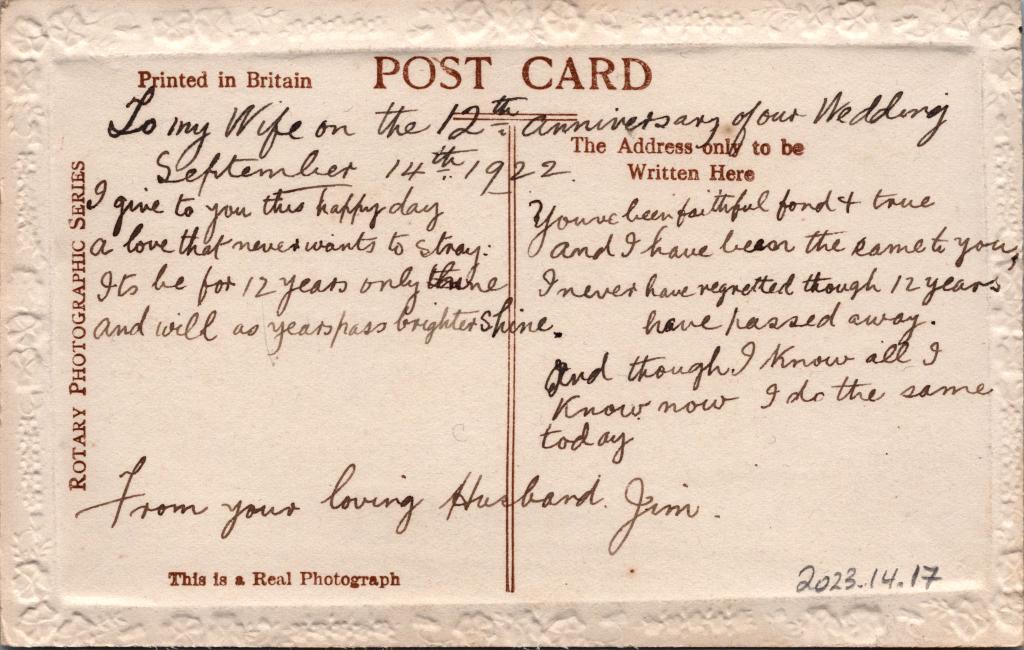 Printed in Britain
POST CARD
To my Wife on the 12th anniversary of our Wedding
September 14th 1922
The Address only to be
Written Here
ROTARY PHOTOGRAPHIC SERIES
I give to you this happy day
a love that never wants to stray.
Its be for 12 years only thine
and will as years pass brighter shine.
You've been faithful fond & true
and I have been the same to you,
I never have regretted though 12 years
have passed away.
And though I know all I
know now I do the same
today
From your loving Husband. Jim.
This is a Real Photograph
2023.14.17